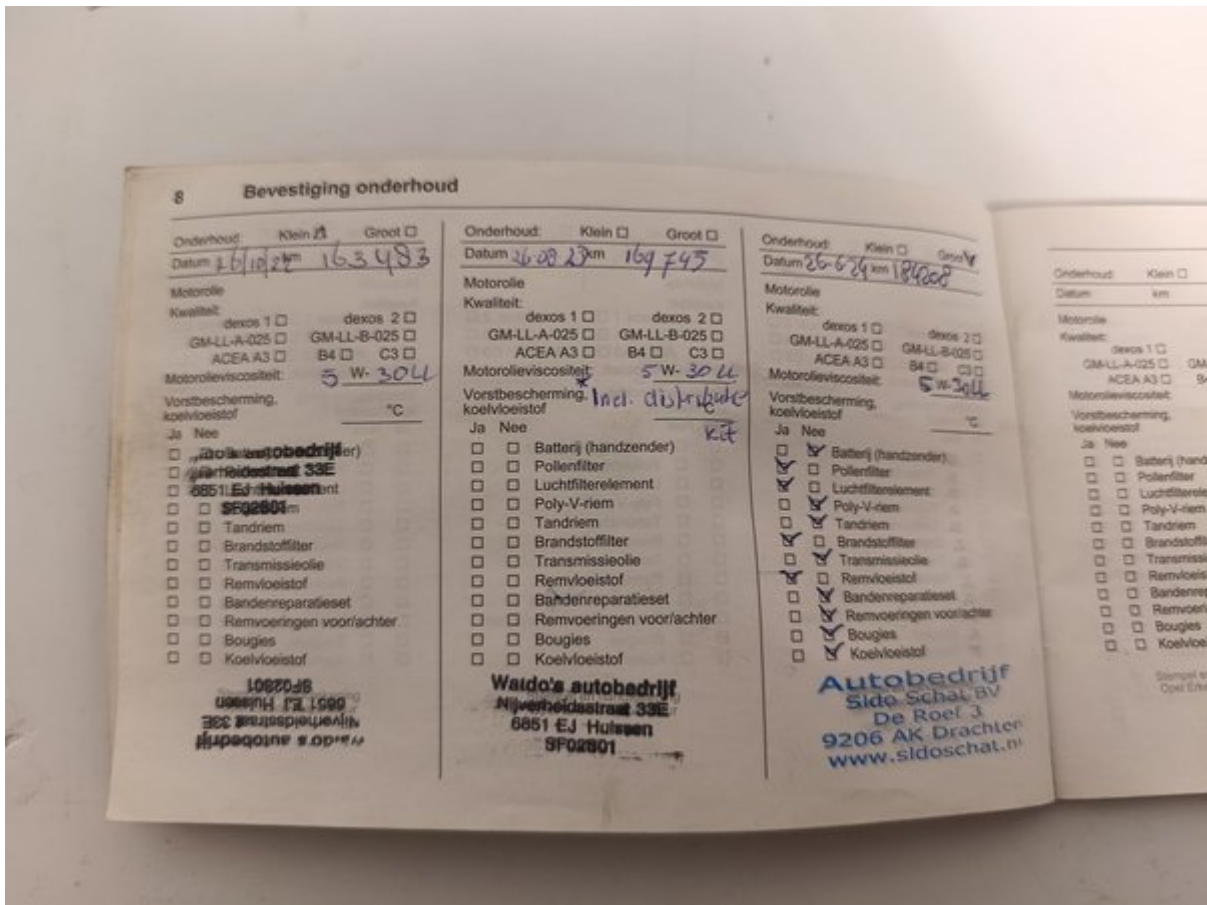 8 Bevestiging onderhoud
Onderhoud: Klein Groot
Datum 26/10/22 km 163483
Motorolie
Kwaliteit:
dexos 1 dexos 2
GM-LL-A-025 GM-LL-B-025
ACEA A3 B4 C3
Motorolieviscositeit: 5 W- 30 LL
Vorstbescherming,
koelvloeistof °C
Ja Nee
autobedrijf
33E
6851 EJ Huissen
SF02801
Tandriem
Brandstoffilter
Transmissieolie
Remvloeistof
Bandenreparatieset
Remvoeringen voor/achter
Bougies
Koelvloeistof
Waldo's autobedrijf
Nijverheidsstraat 33E
6851 EJ Huissen
SF02801
Onderhoud: Klein Groot
Datum 26-08 23 km 169745
Motorolie
Kwaliteit:
dexos 1 dexos 2
GM-LL-A-025 GM-LL-B-025
ACEA A3 B4 C3
Motorolieviscositeit: 5 W- 30 LL
Vorstbescherming, * Incl. distributie
koelvloeistof °C
Ja Nee kit
Batterij (handzender)
Pollenfilter
Luchtfilterelement
Poly-V-riem
Tandriem
Brandstoffilter
Transmissieolie
Remvloeistof
Bandenreparatieset
Remvoeringen voor/achter
Bougies
Koelvloeistof
Waldo's autobedrijf
Nijverheidsstraat 33E
6851 EJ Huissen
SF02801
Onderhoud: Klein Groot
Datum 26-6-24 km 184208
Motorolie
Kwaliteit:
dexos 1 dexos 2
GM-LL-A-025 GM-LL-B-025
ACEA A3 B4 C3
Motorolieviscositeit: 5 W- 30LL
Vorstbescherming,
koelvloeistof °C
Ja Nee
Batterij (handzender)
Pollenfilter
Luchtfilterelement
Poly-V-riem
Tandriem
Brandstoffilter
Transmissieolie
Remvloeistof
Bandenreparatieset
Remvoeringen voor/achter
Bougies
Koelvloeistof
Autobedrijf
Sido Schat BV
De Roef 3
9206 AK Drachten
www.sidoschat.nl
Onderhoud: Klein
Datum km
Motorolie
Kwaliteit:
dexos 1
GM-LL-A-025
ACEA A3
Motorolieviscositeit
Vorstbescherming,
koelvloeistof
Ja Nee
Batterij
Pollenfilter
Poly-V-riem
Tandriem
Bougies
Stempel
Opel